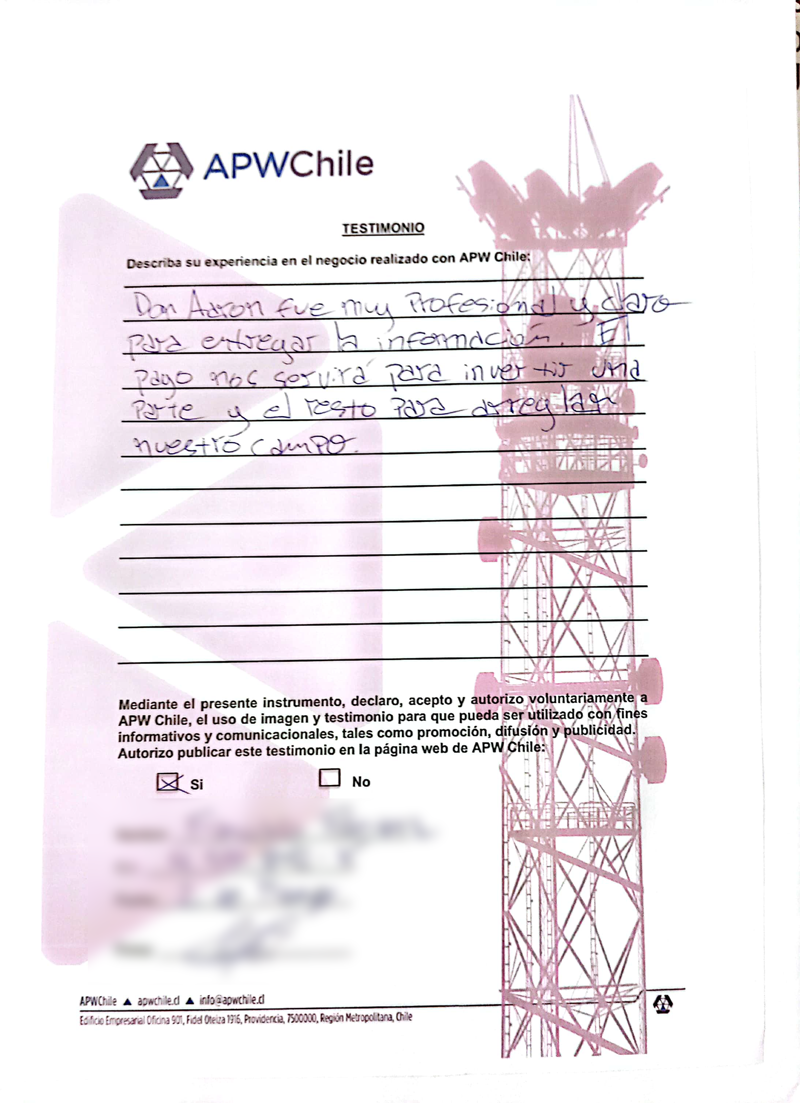 APWChile
TESTIMONIO
Describa su experiencia en el negocio realizado con APW Chile:
Don Aaron fue muy Profesional y claro
para entregar la información. El
pago nos servirá para invertir una
parte y el resto para arreglar
nuestro campo.
Mediante el presente instrumento, declaro, acepto y autorizo voluntariamente a
APW Chile, el uso de imagen y testimonio para que pueda ser utilizado con fines
informativos y comunicacionales, tales como promoción, difusión y publicidad.
Autorizo publicar este testimonio en la página web de APW Chile:
Si No
APWChile ▲ apwchile.cl ▲ info@apwchile.cl
Edificio Empresarial Oficina 901, Fidel Oteiza 1916, Providencia, 7500000, Región Metropolitana, Chile